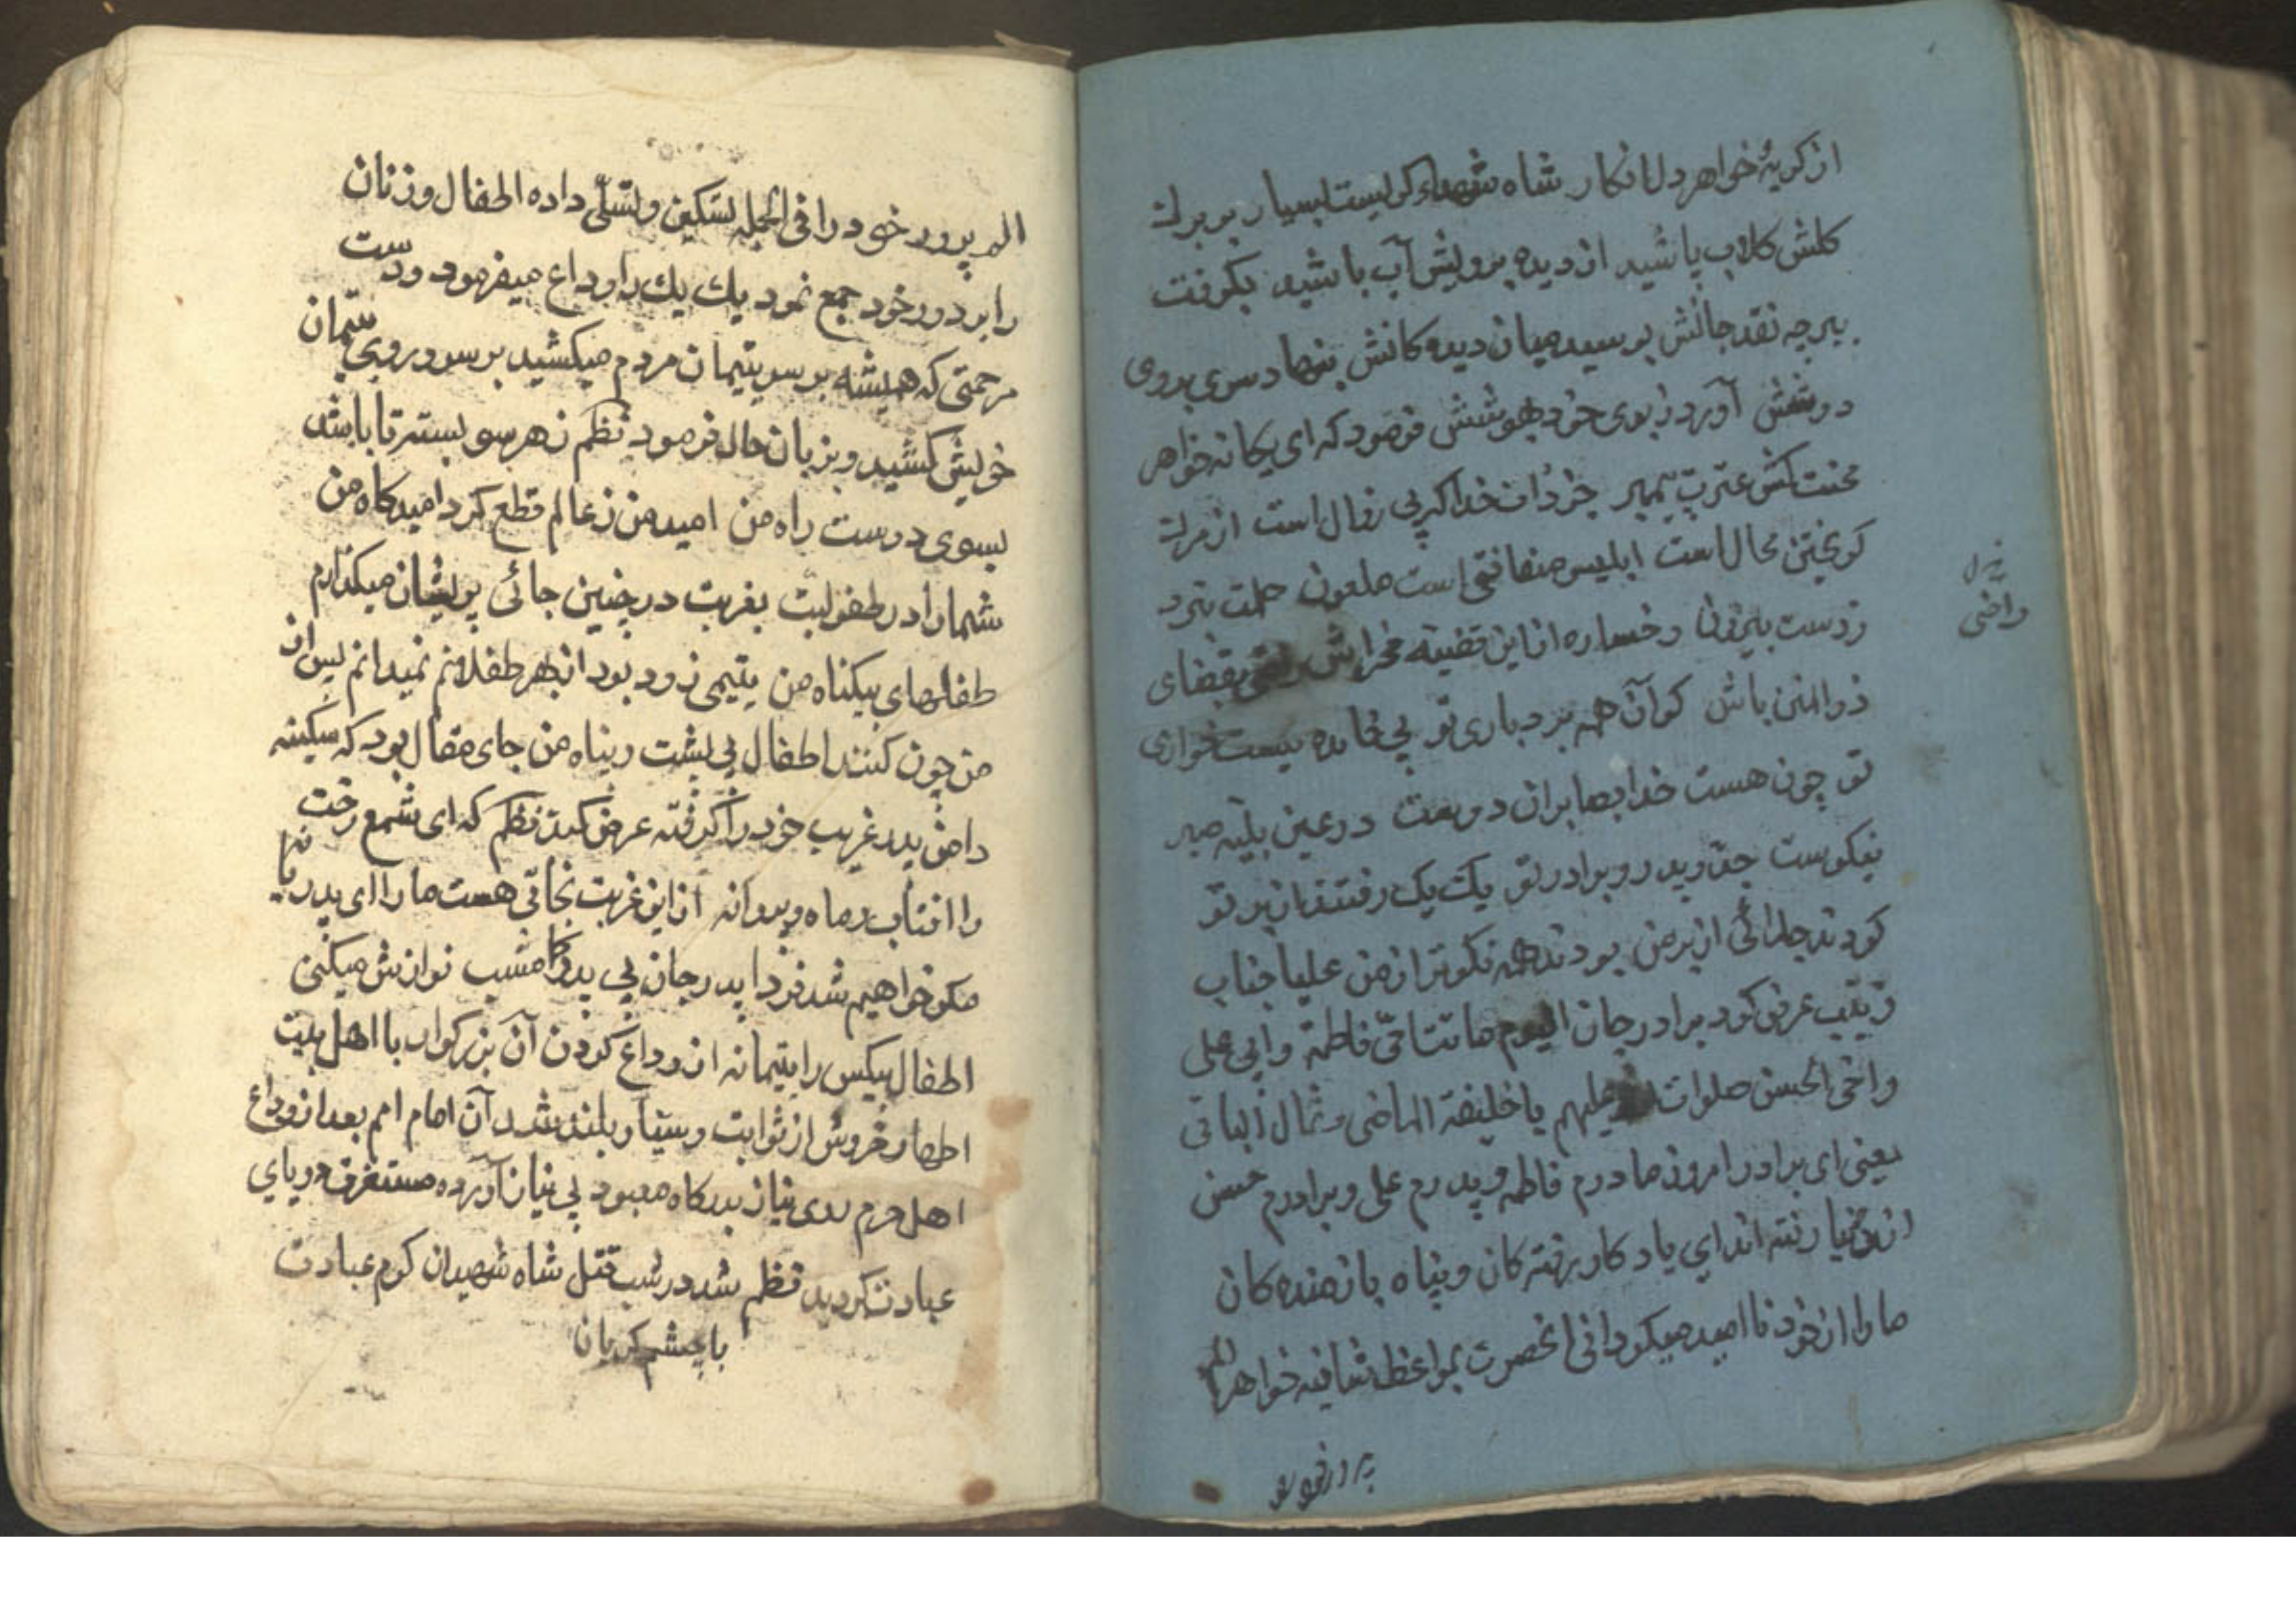 از کریهٔ خواهر دل افکار شاه شهداء کریست بسیار بر برك
کلش کلاب پاشید از دیده برویش آب پاشید بکرفت
ببر چه نقد جانش بوسید میان دیده کانش بنهاد سری بروی
دوشش آورد ببوی خود بهوشش فرمود که ای یکانه خواهر
محنت کش عترت پیمبر جز ذات خدا که بی زوال است از مرك
کریختن محال است ابلیس منافقی است ملعون حلمت نبرد
ز دست بیرون رخساره از این قضیه مخراش راضی بقضای
ذوالمنن باش کو آن همه بردباری تو بی فایده نیست خواری
تو چون هست خدا بصابران دوست در عین بلیه صبر
نیکوست جد و پدر و برادر تو یك یك رفتند از بر تو
کردند جدائی از بر من بودند همه نکوتر از من علیا جناب
زینب عرض کرد برادر جان الیوم ماتت امّی فاطمة و ابی علی
و اخی الحسن صلوات علیهم یا خلیفة الماضی و ثمال الباقی
یعنی ای برادر امروز مادرم فاطمه و پدرم علی و برادرم حسن
از دنیا رفته اند ای یادکار رفته کان و پناه بازمنده کان
ما را از خود نا امید میکردانی انحضرت بمواعظ شافیه خواهر الم
راضی
پرور خود
الم پرور خود را فی الجمله تسکین و تسلّی داده اطفال و زنان
را بر دور خود جمع نمود یك یك را وداع میفرمود و دست
مرحمتی که همیشه بر سر یتیمان مردم میکشید بر سر و روی یتیمان
خویش کشید و بزبان حال فرمود نظم ز هر سو بستر تا باشد
بسوی دوست راه من امید من ز عالم قطع کرد امیدکاه من
شما را در طفولیت بغربت در چنین جائی پریشان میکذارم
طفلهای بیکناه من یتیمی زود بود از بهر طفلانم نمیدانم پس از
من چون کنند اطفال بی پشت و پناه من جای مقال بود که سکینه
دامن پدر غریب خود را کرفته عرض کند نظم که ای شمع رخت
را افتاب و ماه و پروانه از این غربت نجاتی هست ما را ای پدر یا نه
مکو خواهیم شد فردا پدر جان بی پدر کامشب نوازش میکنی
اطفال بیکس را یتیمانه از وداع کردن آن بزرکوار با اهل بیت
اطهار خروش از ثوابت و سیار بلند شد آن امام امم بعد از وداع
اهل حرم روی نیاز بدرکاه معبود بی نیاز آورده مستغرق دریای
عبادت کردید نظم شد در شب قتل شاه شهیدان کرم عبادت
با چشم کریان